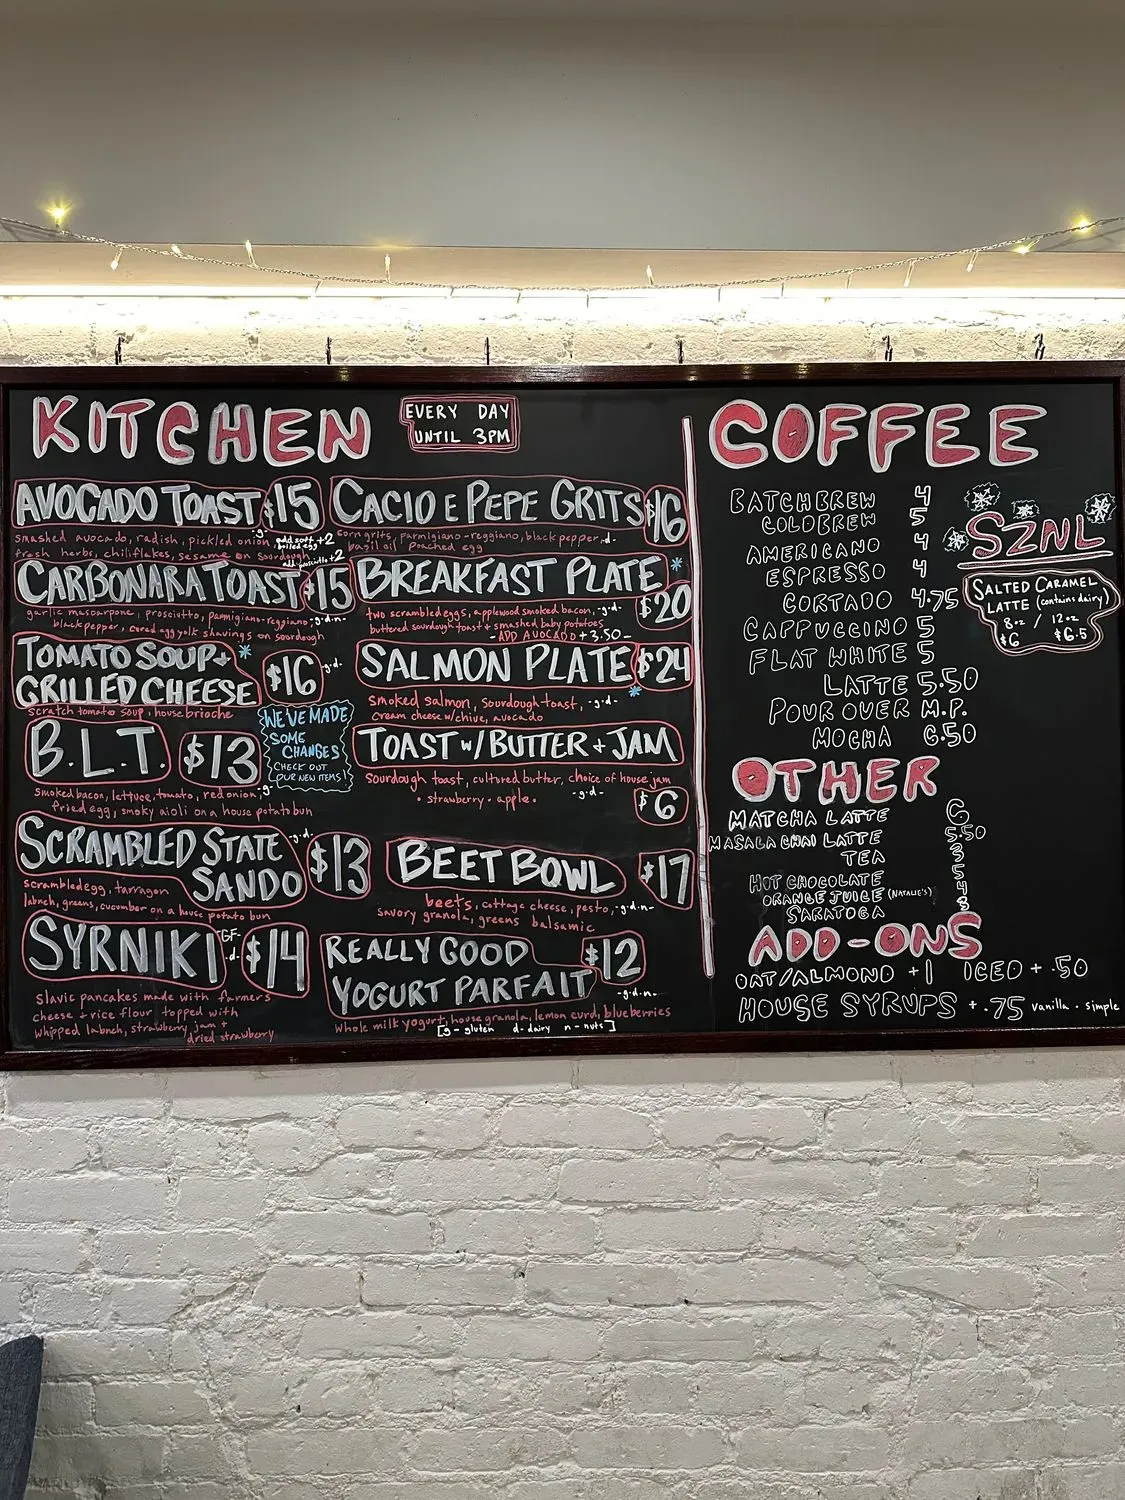 KITCHEN
EVERY DAY
UNTIL 3PM
AVOCADO TOAST $15
smashed avocado, radish, pickled onion -g-
fresh herbs, chiliflakes, sesame on sourdough
add soft +2
boiled egg
add prosciutto +2
CARBONARA TOAST $15
garlic mascarpone, prosciutto, parmigiano-reggiano, -g.d.n-
black pepper, cured egg yolk shavings on sourdough
TOMATO SOUP + *
GRILLED CHEESE $16 -g.d-
scratch tomato soup, house brioche
B.L.T. $13
smoked bacon, lettuce, tomato, red onion, -g-
fried egg, smoky aioli on a house potato bun
WE'VE MADE
SOME
CHANGES
CHECK OUT
OUR NEW ITEMS!
SCRAMBLED STATE -g.d-
SANDO $13
scrambled egg, tarragon
labneh, greens, cucumber on a house potato bun
SYRNIKI -GF-
-d- $14
slavic pancakes made with farmers
cheese + rice flour topped with
whipped labneh, strawberry jam +
dried strawberry
CACIO E PEPE GRITS $16
corn grits, parmigiano-reggiano, black pepper, -d-
basil oil poached egg
BREAKFAST PLATE *
$20
two scrambled eggs, applewood smoked bacon, -g.d-
buttered sourdough toast + smashed baby potatoes
- ADD AVOCADO +3.50-
SALMON PLATE $24
*
smoked salmon, sourdough toast, -g.d-
cream cheese w/chive, avocado
TOAST w/ BUTTER + JAM
sourdough toast, cultured butter, choice of house jam
• strawberry • apple • -g.d-
$6
BEET BOWL $17
beets, cottage cheese, pesto, -g.d.n-
savory granola, greens balsamic
REALLY GOOD
YOGURT PARFAIT $12
-g.d.n-
whole milk yogurt, house granola, lemon curd, blueberries
[g- gluten d-dairy n-nuts]
COFFEE
BATCH BREW 4
COLD BREW 5
AMERICANO 4
ESPRESSO 4
CORTADO 4.75
CAPPUCCINO 5
FLAT WHITE 5
LATTE 5.50
POUR OVER M.P.
MOCHA 6.50
SZNL
SALTED CARAMEL
LATTE (contains dairy)
8oz / 12oz
$6 $6.5
OTHER
MATCHA LATTE 6
MASALA CHAI LATTE 5.50
TEA 3
HOT CHOCOLATE 5
ORANGE JUICE (NATALIE'S) 4
SARATOGA 3
ADD-ONS
OAT/ALMOND +1 ICED + .50
HOUSE SYRUPS +.75 vanilla • simple